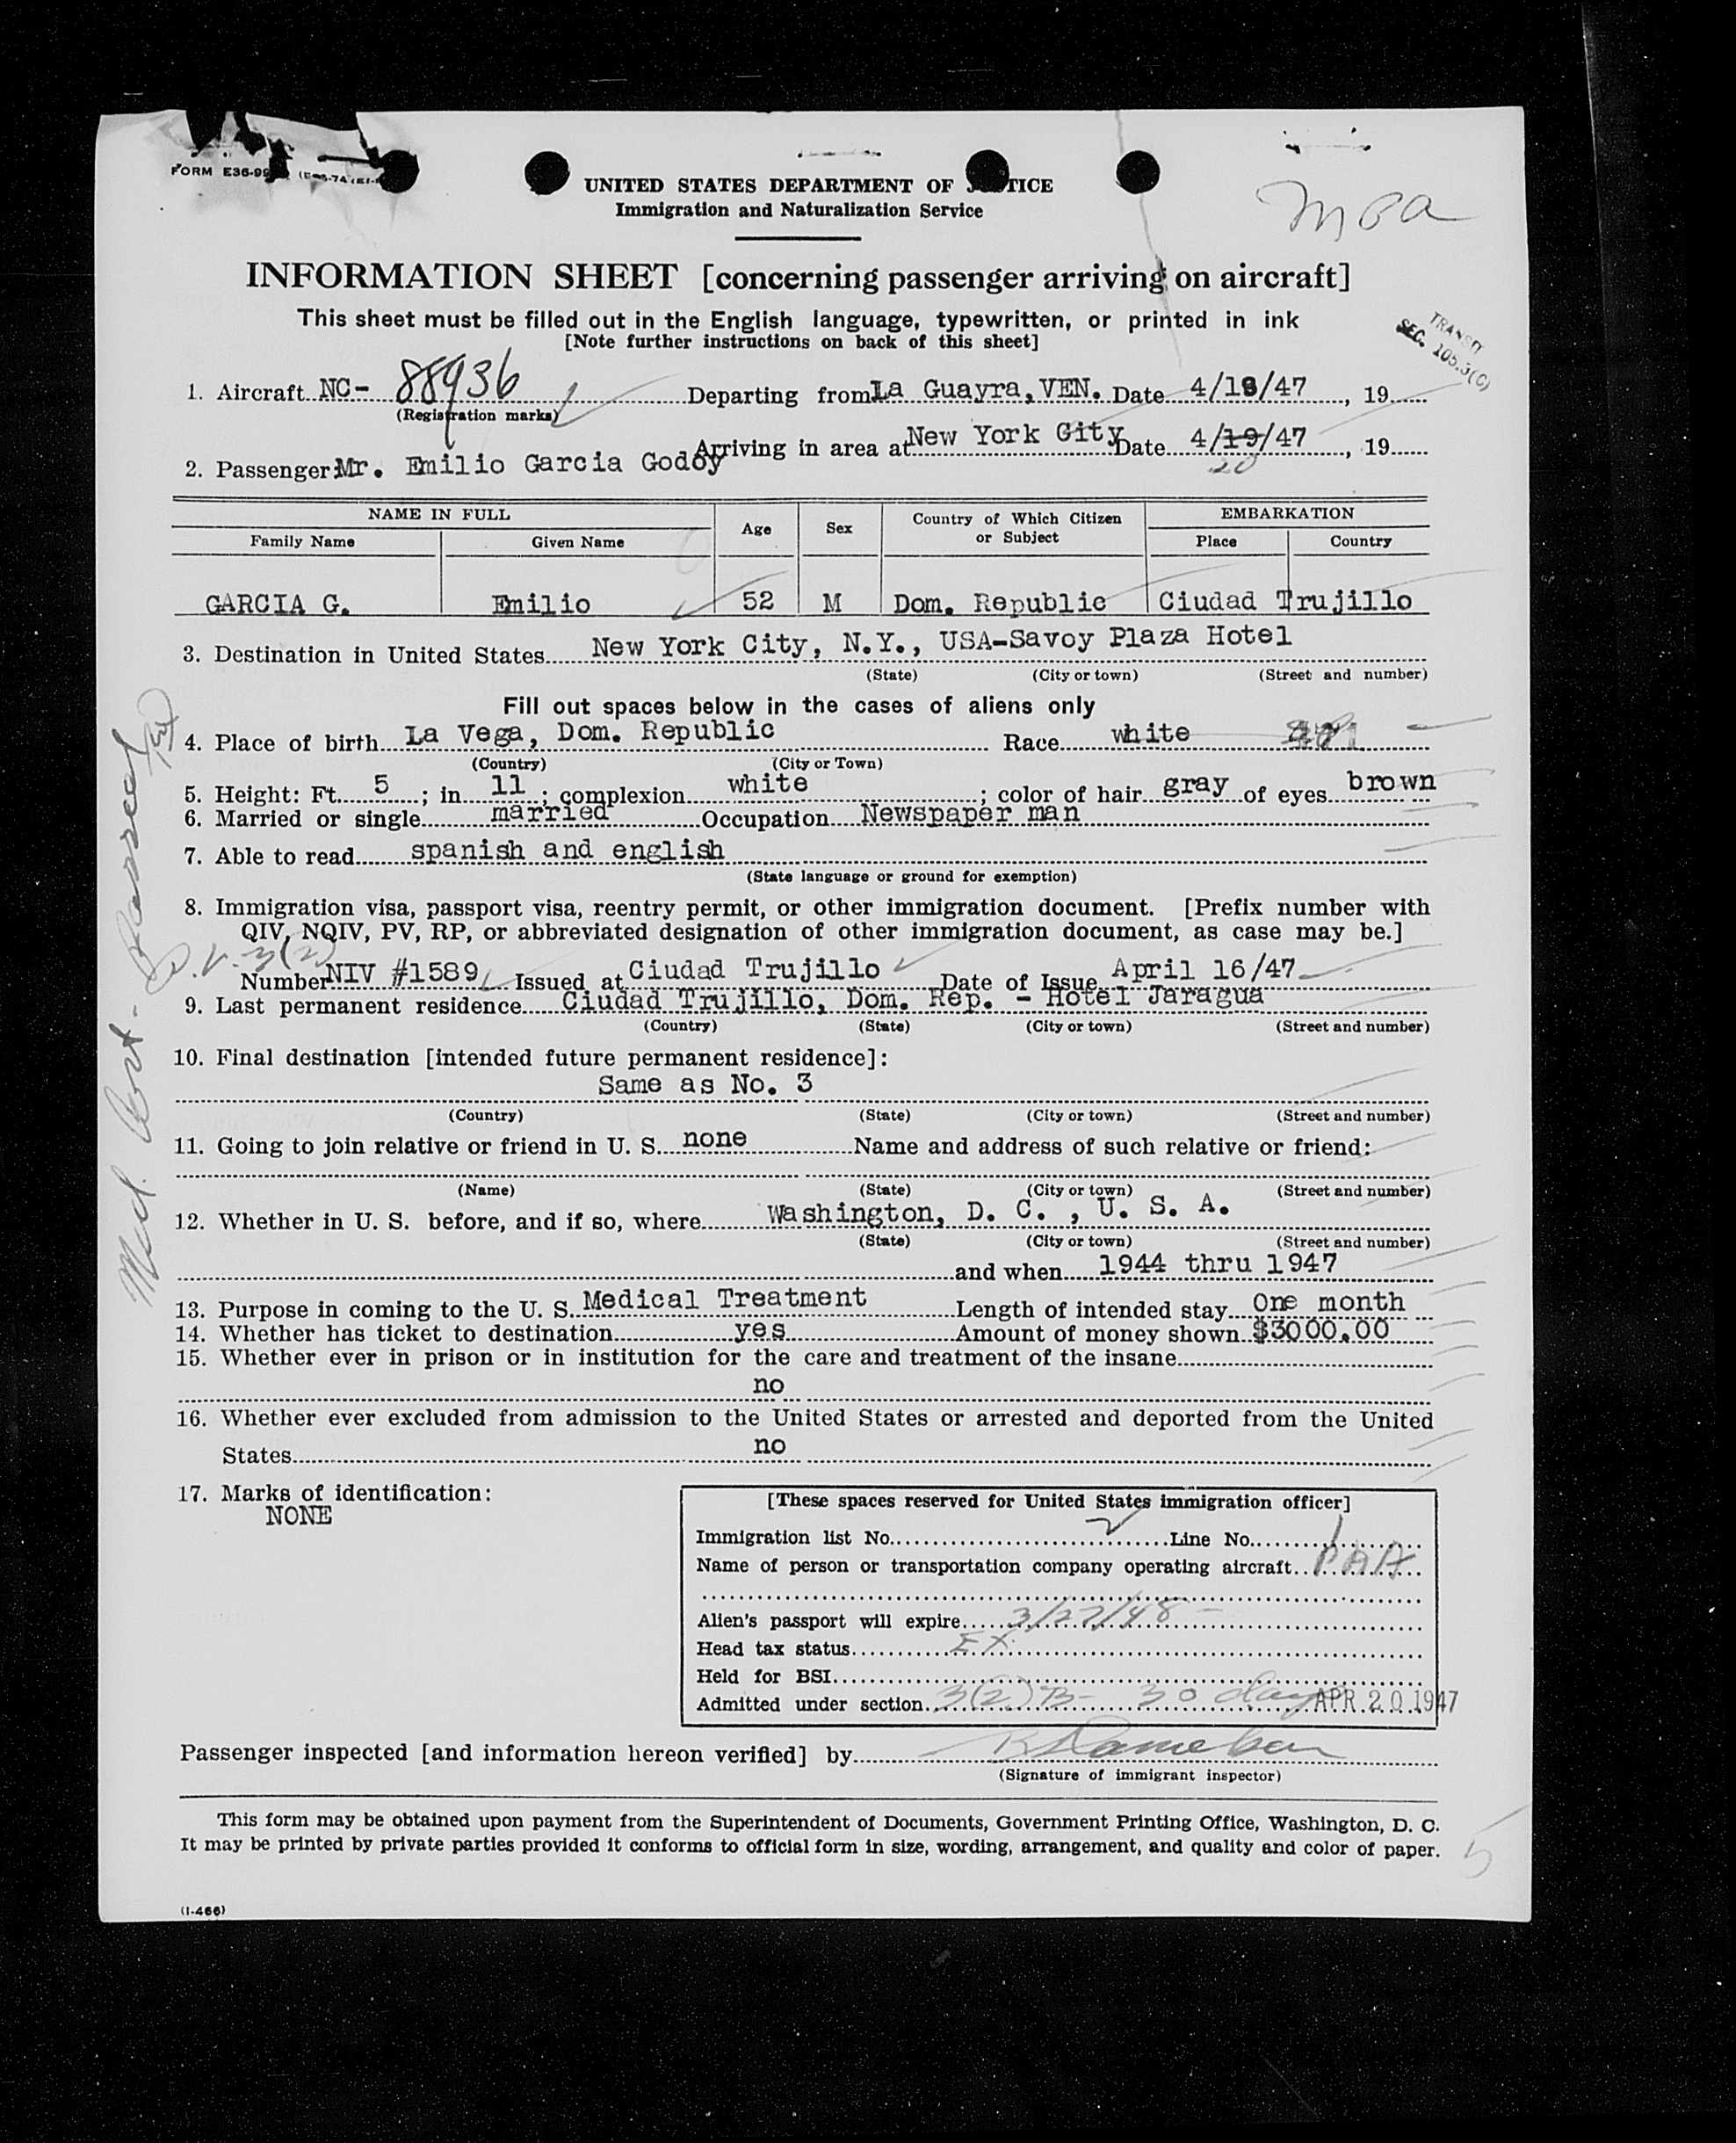 FORM E36-99
UNITED STATES DEPARTMENT OF JUSTICE
Immigration and Naturalization Service
INFORMATION SHEET [concerning passenger arriving on aircraft]
This sheet must be filled out in the English language, typewritten, or printed in ink
[Note further instructions on back of this sheet]
TRANSIT
SEC. 105.3(C)
1. Aircraft NC- 88936 Departing from La Guayra, VEN. Date 4/18/47, 19
(Registration marks)
Arriving in area at New York City Date 4/19/47, 19
20
2. Passenger Mr. Emilio Garcia Godoy
NAME IN FULL Age Sex Country of Which Citizen or Subject EMBARKATION
Family Name Given Name Place Country
GARCIA G. Emilio 52 M Dom. Republic Ciudad Trujillo
3. Destination in United States New York City, N.Y., USA-Savoy Plaza Hotel
(State) (City or town) (Street and number)
Fill out spaces below in the cases of aliens only
4. Place of birth La Vega, Dom. Republic Race white
(Country) (City or Town)
5. Height: Ft. 5; in 11; complexion white; color of hair gray of eyes brown
6. Married or single married Occupation Newspaper man
7. Able to read spanish and english
(State language or ground for exemption)
8. Immigration visa, passport visa, reentry permit, or other immigration document. [Prefix number with
QIV, NQIV, PV, RP, or abbreviated designation of other immigration document, as case may be.]
P.V. 3(2)
Number NIV #1589 Issued at Ciudad Trujillo Date of Issue April 16/47
9. Last permanent residence Ciudad Trujillo, Dom. Rep. - Hotel Jaragua
(Country) (State) (City or town) (Street and number)
10. Final destination [intended future permanent residence]:
Same as No. 3
(Country) (State) (City or town) (Street and number)
11. Going to join relative or friend in U. S. none Name and address of such relative or friend:
(Name) (State) (City or town) (Street and number)
12. Whether in U. S. before, and if so, where Washington, D. C. , U. S. A.
(State) (City or town) (Street and number)
and when 1944 thru 1947
13. Purpose in coming to the U. S. Medical Treatment Length of intended stay One month
14. Whether has ticket to destination yes Amount of money shown $3000.00
15. Whether ever in prison or in institution for the care and treatment of the insane
no
16. Whether ever excluded from admission to the United States or arrested and deported from the United
States no
17. Marks of identification:
NONE
[These spaces reserved for United States immigration officer]
Immigration list No. 2 Line No. 1
Name of person or transportation company operating aircraft PAA
Alien's passport will expire 3/27/48 -
Head tax status EX
Held for BSI
Admitted under section 3(2)B- 30 days APR 20 1947
Passenger inspected [and information hereon verified] by
(Signature of immigrant inspector)
This form may be obtained upon payment from the Superintendent of Documents, Government Printing Office, Washington, D. C.
It may be printed by private parties provided it conforms to official form in size, wording, arrangement, and quality and color of paper.
5
(I-466)
Med. Cert.